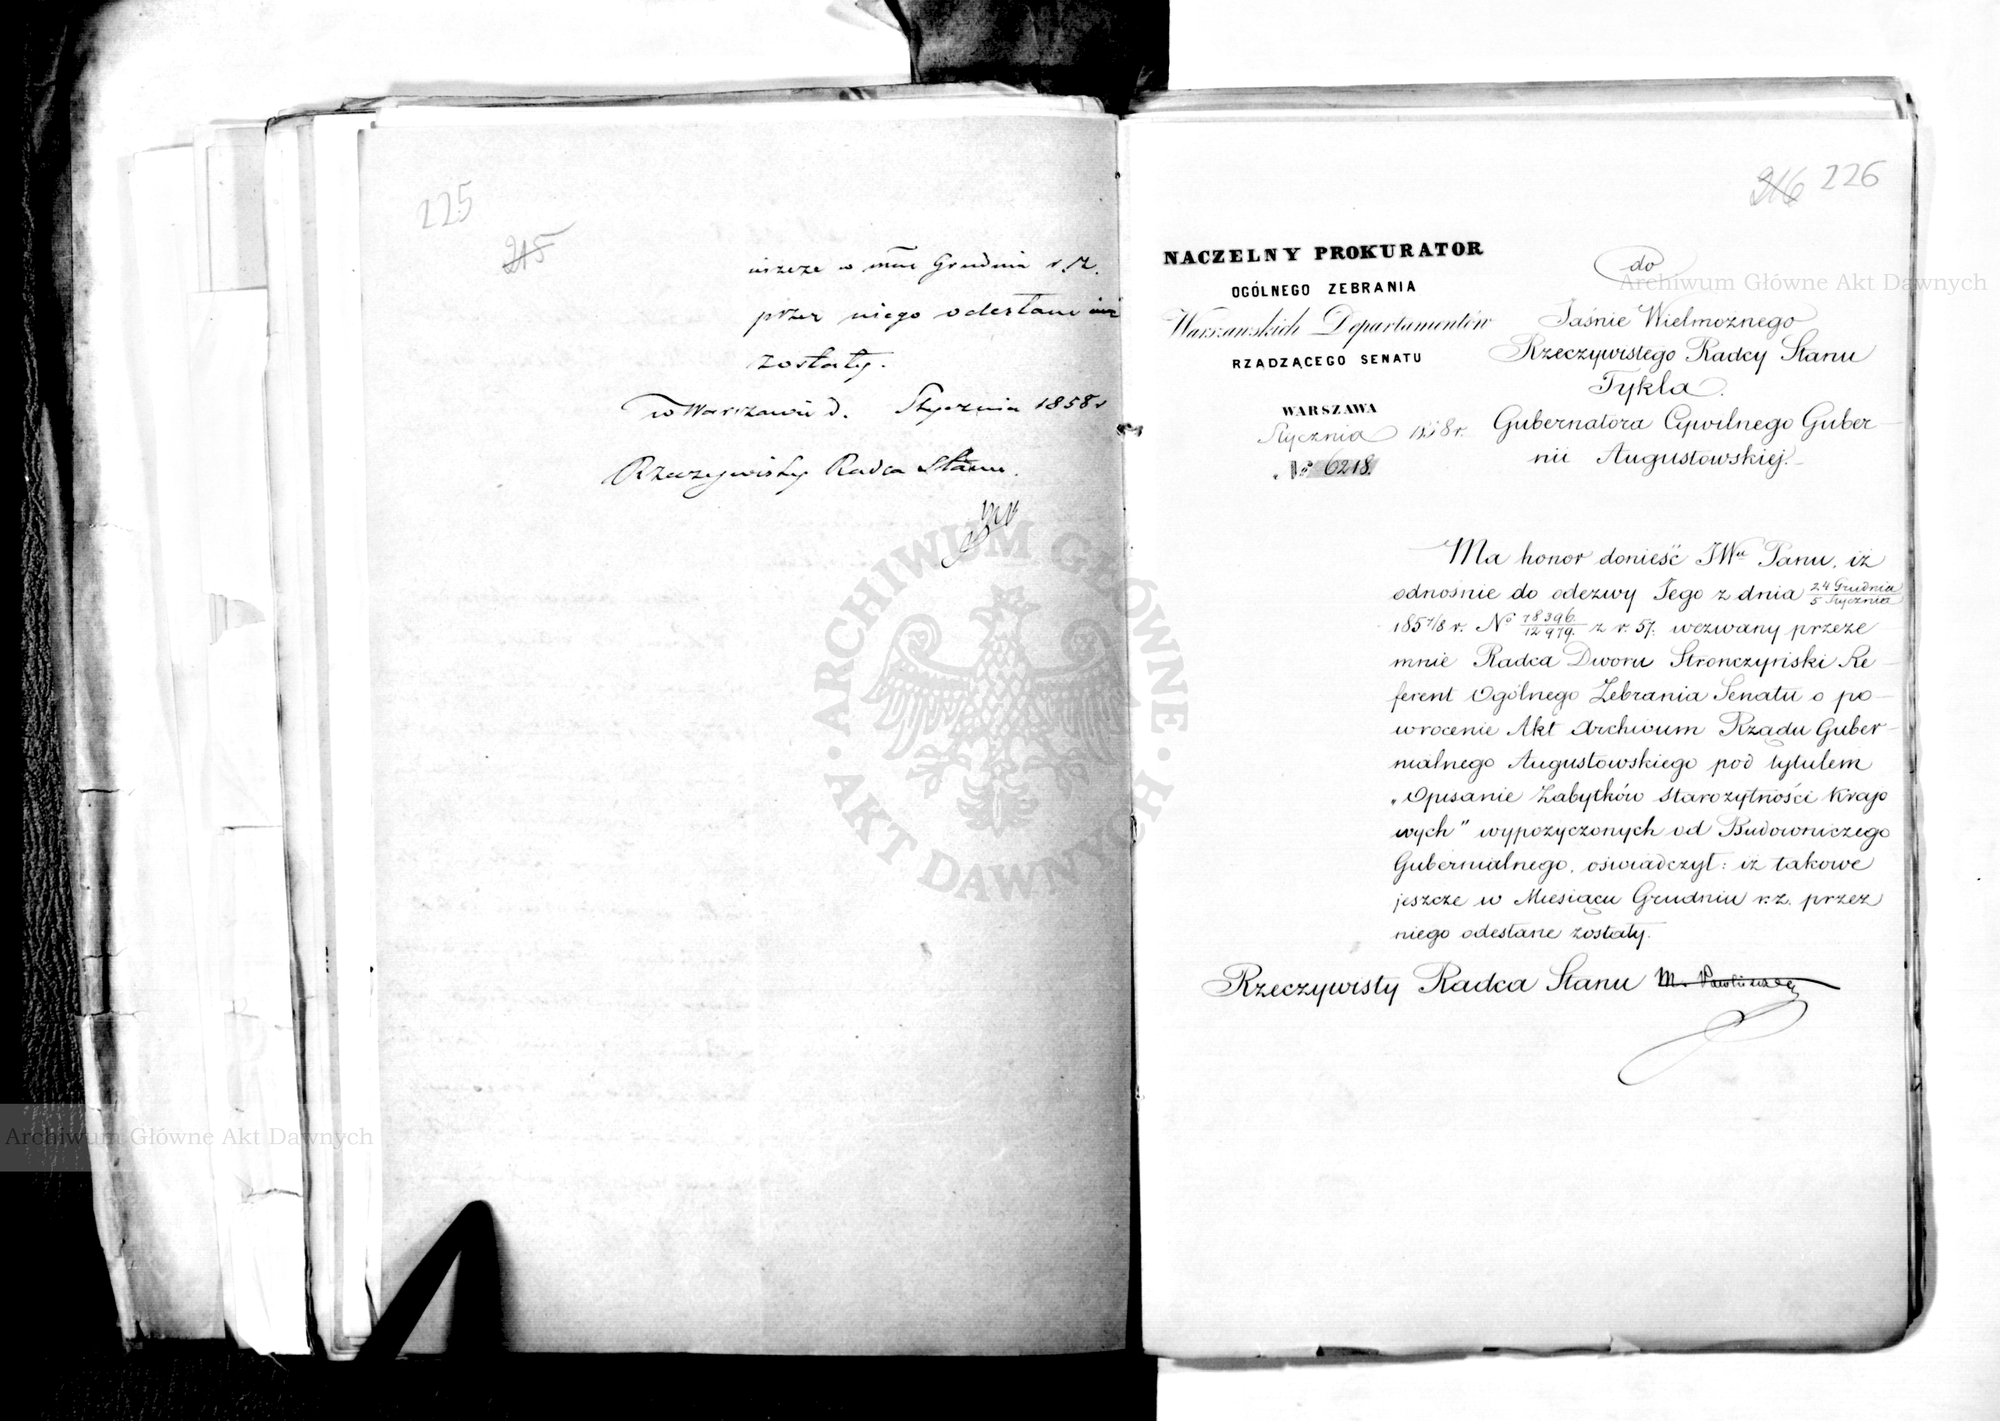 225
215
w mcu Grudniu r. z.
przez niego odesłane
zostały.
w Warszawie d. Stycznia 1858 r
Rzeczywisty Radca Stanu.
216 226
NACZELNY PROKURATOR
OGÓLNEGO ZEBRANIA
Warszawskich Departamentów
RZĄDZĄCEGO SENATU
WARSZAWA
Stycznia 1858 r.
No 6218.
do
Jaśnie Wielmożnego
Rzeczywistego Radcy Stanu
Tykla.
Gubernatora Cywilnego Guber
nii Augustowskiej.
Ma honor donieść JWu Panu, iż
odnośnie do odezwy Jego z dnia 24 Grudnia/5 Stycznia
1857/8 r. No 78396/12979. z r. 57. wezwany przeze
mnie Radca Dworu Stronczyński Re-
ferent Ogólnego Zebrania Senatu o po-
wrocenie Akt Archiwum Rządu Guber-
nialnego Augustowskiego pod tytułem
"Opisanie Zabytków starożytności Krajo
wych" wypożyczonych od Budowniczego
Gubernialnego, oświadczył: iż takowe
jeszcze w Miesiącu Grudniu r. z. przez
niego odesłane zostały.
Rzeczywisty Radca Stanu M.
Archiwum Główne Akt Dawnych
Archiwum Główne Akt Dawnych
ARCHIWUM GŁÓWNE AKT DAWNYCH